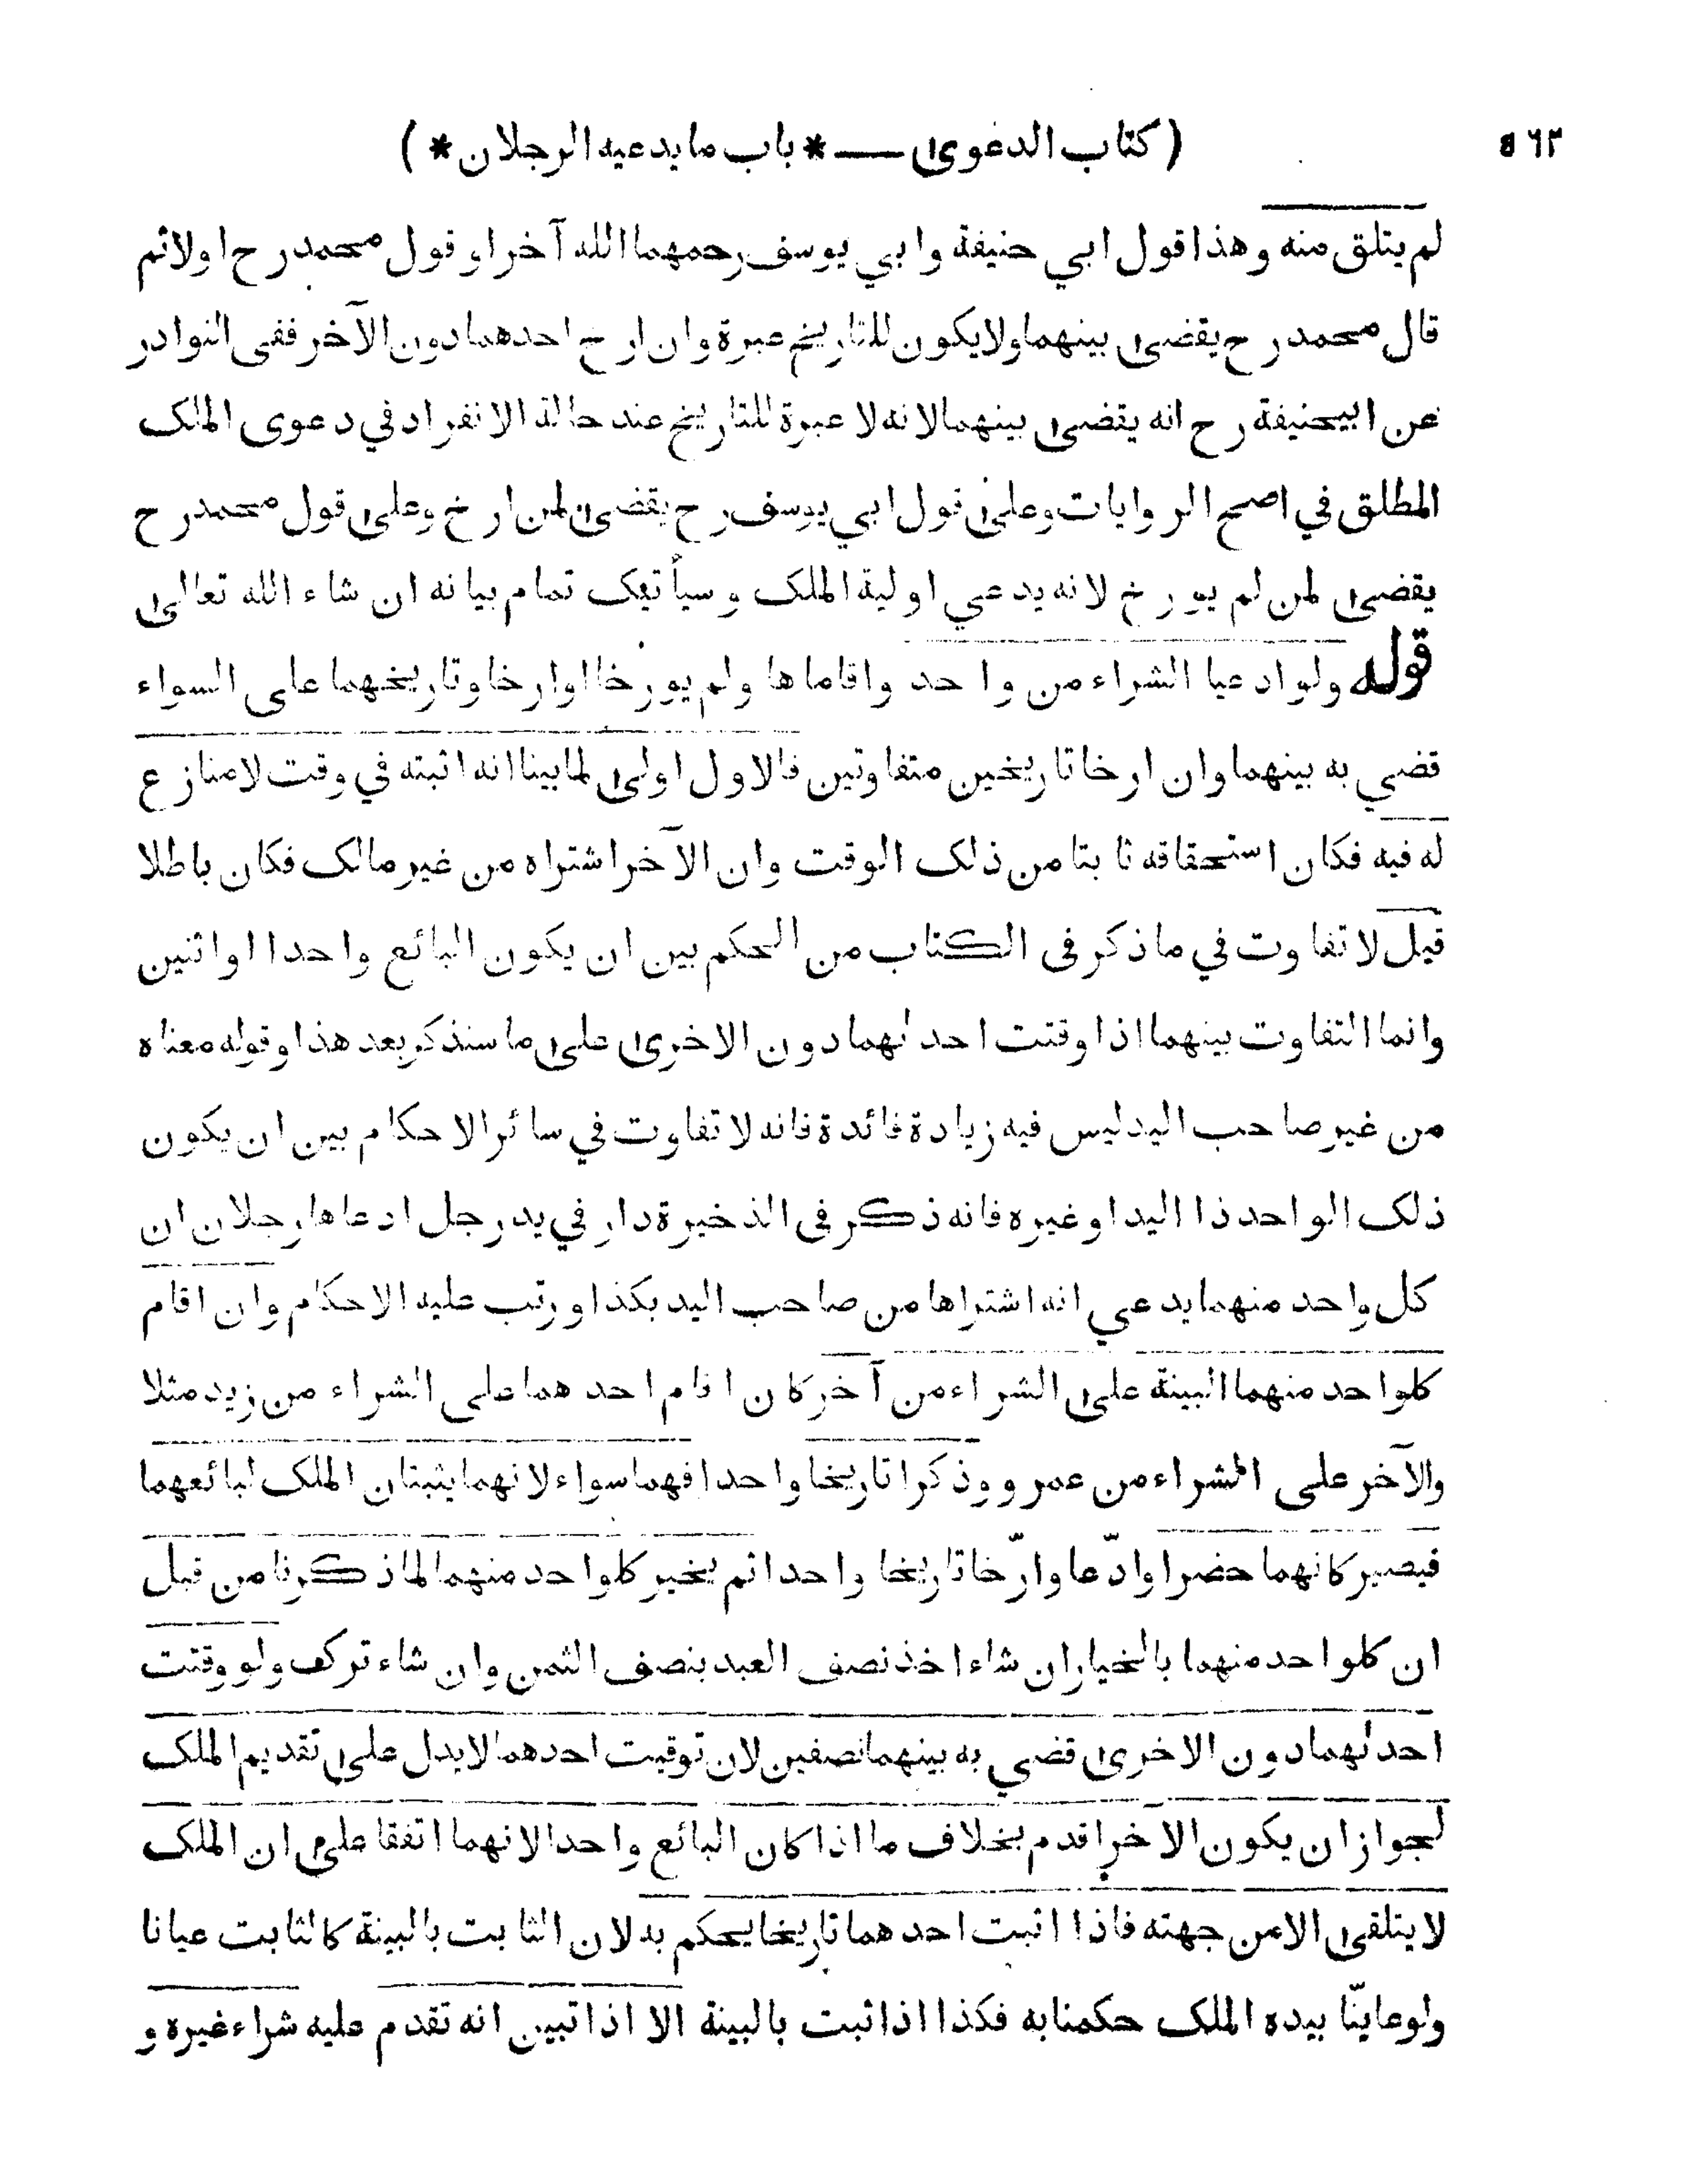 ٥٦٢ (كتاب الدعوى — * باب ما يدعيه الرجلان *)
لم يتلق منه وهذا قول ابي حنيفة وابي يوسف رحمهما الله آخرا وقول محمد رح اولا ثم
قال محمد رح يقضى بينهما ولا يكون للتاريخ عبرة وان ارخ احدهما دون الآخر ففى النوادر
عن ابيحنيفة رح انه يقضى بينهما لانه لا عبرة للتاريخ عند حالة الانفراد في دعوى الملك
المطلق في اصح الروايات وعلى قول ابي يوسف رح يقضى لمن ارخ وعلى قول محمد رح
يقضى لمن لم يورخ لانه يدعي اولية الملك وسيأتيك تمام بيانه ان شاء الله تعالى
قوله ولو ادعيا الشراء من واحد واقاماها ولم يورخا اوارخا وتاريخهما على السواء
قضي به بينهما وان ارخا تاريخين متفاوتين فالاول اولى لما بينا انه اثبته في وقت لا منازع
له فيه فكان استحقاقه ثابتا من ذلك الوقت وان الآخر اشتراه من غير مالك فكان باطلا
قيل لا تفاوت في ما ذكر فى الكتاب من الحكم بين ان يكون البائع واحدا او اثنين
وانما التفاوت بينهما اذا وقتت احدٰهما دون الاخرى على ما سنذكر بعد هذا وقوله معناه
من غير صاحب اليد ليس فيه زيادة فائدة فانه لا تفاوت في سائر الاحكام بين ان يكون
ذلك الواحد ذا اليد او غيره فانه ذكر فى الذخيرة دار في يد رجل ادعاها رجلان ان
كل واحد منهما يدعي انه اشتراها من صاحب اليد بكذا ورتب عليه الاحكام وان اقام
كلواحد منهما البينة على الشراء من آخر كان اقام احدهما على الشراء من زيد مثلا
والآخر على الشراء من عمرو وذكرا تاريخا واحدا فهما سواء لانهما يثبتان الملك لبائعهما
فيصير كانهما حضرا وادّعا وارّخا تاريخا واحدا ثم يخير كلواحد منهما لما ذكرنا من قبل
ان كلواحد منهما بالخيار ان شاء اخذ نصف العبد بنصف الثمن وان شاء ترك ولو وقتت
احدٰهما دون الاخرى قضي به بينهما نصفين لان توقيت احدهما لا يدل على تقديم الملك
لجواز ان يكون الآخر اقدم بخلاف ما اذا كان البائع واحدا لانهما اتفقا على ان الملك
لا يتلقى الا من جهته فاذا اثبت احدهما تاريخا يحكم به لان الثابت بالبينة كالثابت عيانا
ولو عاينّا بيده الملك حكمنا به فكذا اذا ثبت بالبينة الا اذا تبين انه تقدم عليه شراء غيره و